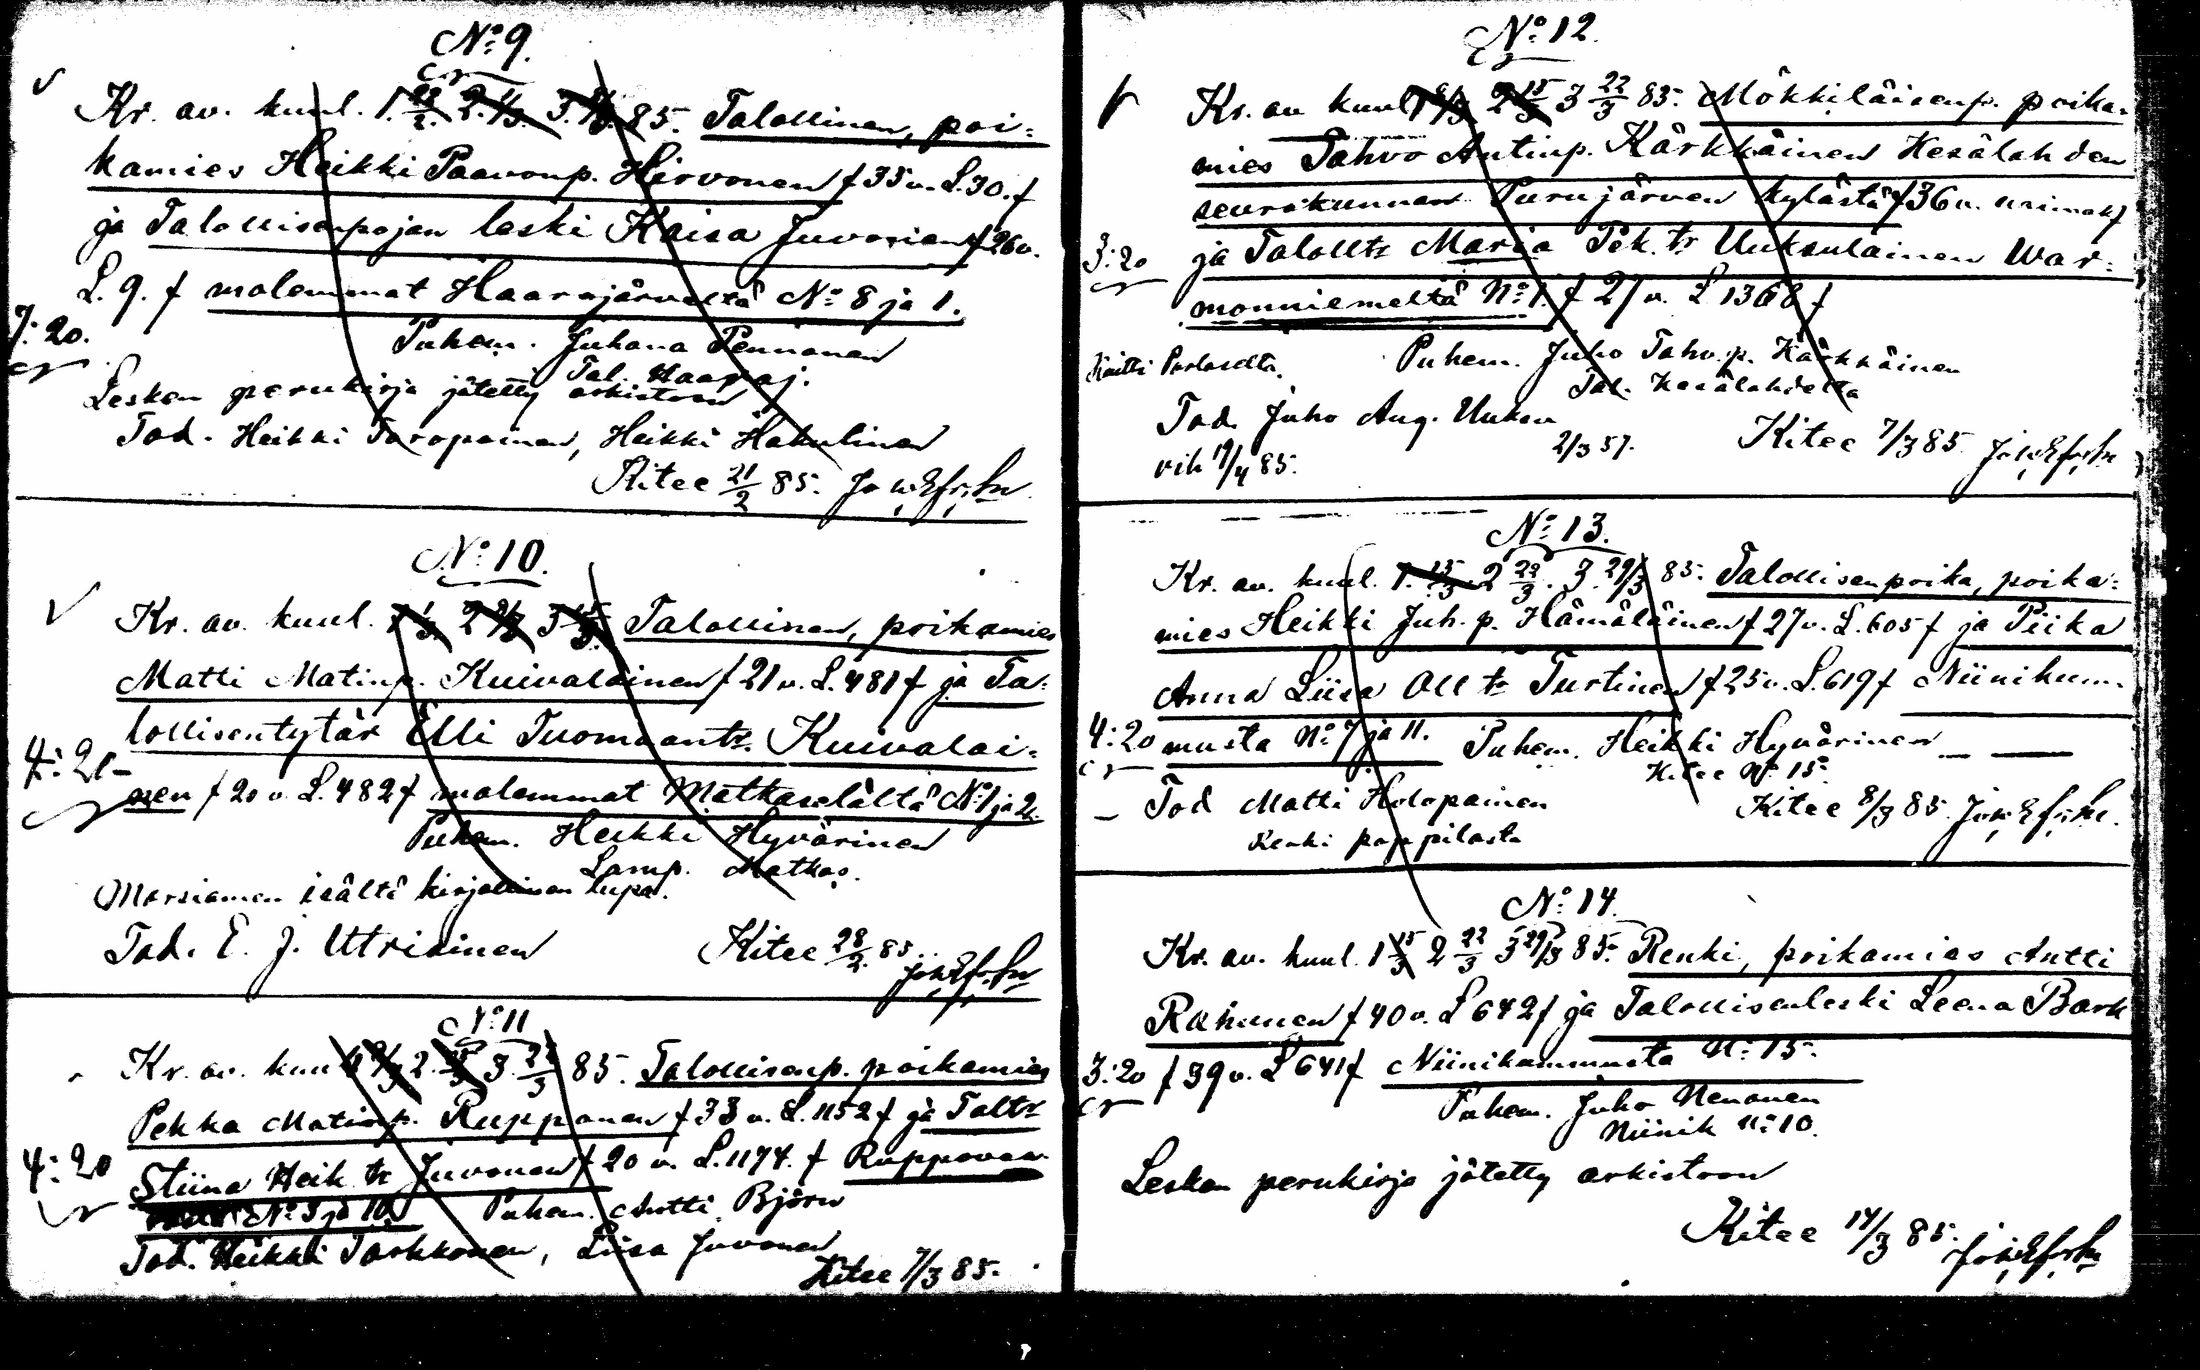 No 9.
Kr. av. kuul. 1. 22/2. 2. 1/3. 3. 8/3 85. Talollinen, poi-
kamies Heikki Paavonp. Hirvonen f 35 v. L. 30. f
ja Talollisenpojan leski Kaisa Juvonen f 26 v.
L. 9. f molemmat Haarajärveltä No 8 ja 1.
7:20.
Puhem. Juhana Pennanen
Tal. Haaraj.
Lesken perukirja jätetty arkistoon
Tod. Heikki Toropainen, Heikki Hakulinen
Kitee 21/2 85.
No 10.
Kr. av. kuul. 1 1/3 2 8/3 3 15/3 Talollinen, poikamies
Matti Matinp. Kuivalainen f 21 v. L. 481 f ja Ta-
lollisentytär Elli Tuomaantr. Kuivalai-
nen f 20 v. L. 482 f molemmat Matkaselältä No 1 ja 2.
4:21-
Puhem. Heikki Hyvärinen
Lamp. Matkas.
Morsiamen isältä kirjallinen lupa.
Tod. E. J. Utriainen
Kitee 28/2 85.
No 11
Kr. av. kuul 1 8/3 2. 15/3 3. 22/3 85. Talollisenp. poikamies
Pekka Matinp. Ruppanen f 33 v. L. 1152 f ja Taltr
4:20
Stiina Heik. tr Juvonen f 20 v. L. 1174. f Ruppovaa
No 3 ja 10. Puhem. Antti Björn
Tod. Heikki Tarkkonen, Liisa Juvonen
Kitee 7/3 85.
No 12.
Kr. av kuul 1 8/3 2 15/3 3 22/3 85. Mökkiläisenp. poika-
mies Pahvo Antinp. Kärkkäinen Kesälahden
seurakunnan Purujärven kylästä f 36 v.
3:20
ja Talolltr Maria Pek. tr Uuksulainen War-
monniemeltä No 1. f 27 v. L 1368 f
Puhem. Juho Tahv. p. Kärkkäinen
Tal. Kesälahdelta
Tod. Juho Aug. Uuksu
2/3 57.
Kitee 7/3 85.
vih 19/4 85.
No 13.
Kr. av. kuul. 1. 15/3 2 22/3. 3. 29/3 85. Talollisenpoika, poika-
mies Heikki Juh. p. Hämäläinen f 27 v. L. 605 f ja Piika
Anna Liisa Oll tr Turtinen f 25 v. L. 619 f Niinikum-
4:20
musta No 7 ja 11. Puhem. Heikki Hyvärinen
Kitee No 15.
Tod Matti Holopainen
Renki pappilasta
Kitee 8/3 85.
No 14.
Kr. av. kuul. 1 15/3 2 22/3 3 29/3 85. Renki, poikamies Antti
Rahunen f 40 v. L 642 f ja Talollisenleski Leena Bork
3:20
f 39 v. L 641 f Niinikummusta No 15.
Puhem. Juho Nenonen
Niinik No 10.
Lesken perukirja jätetty arkistoon
Kitee 14/3 85.